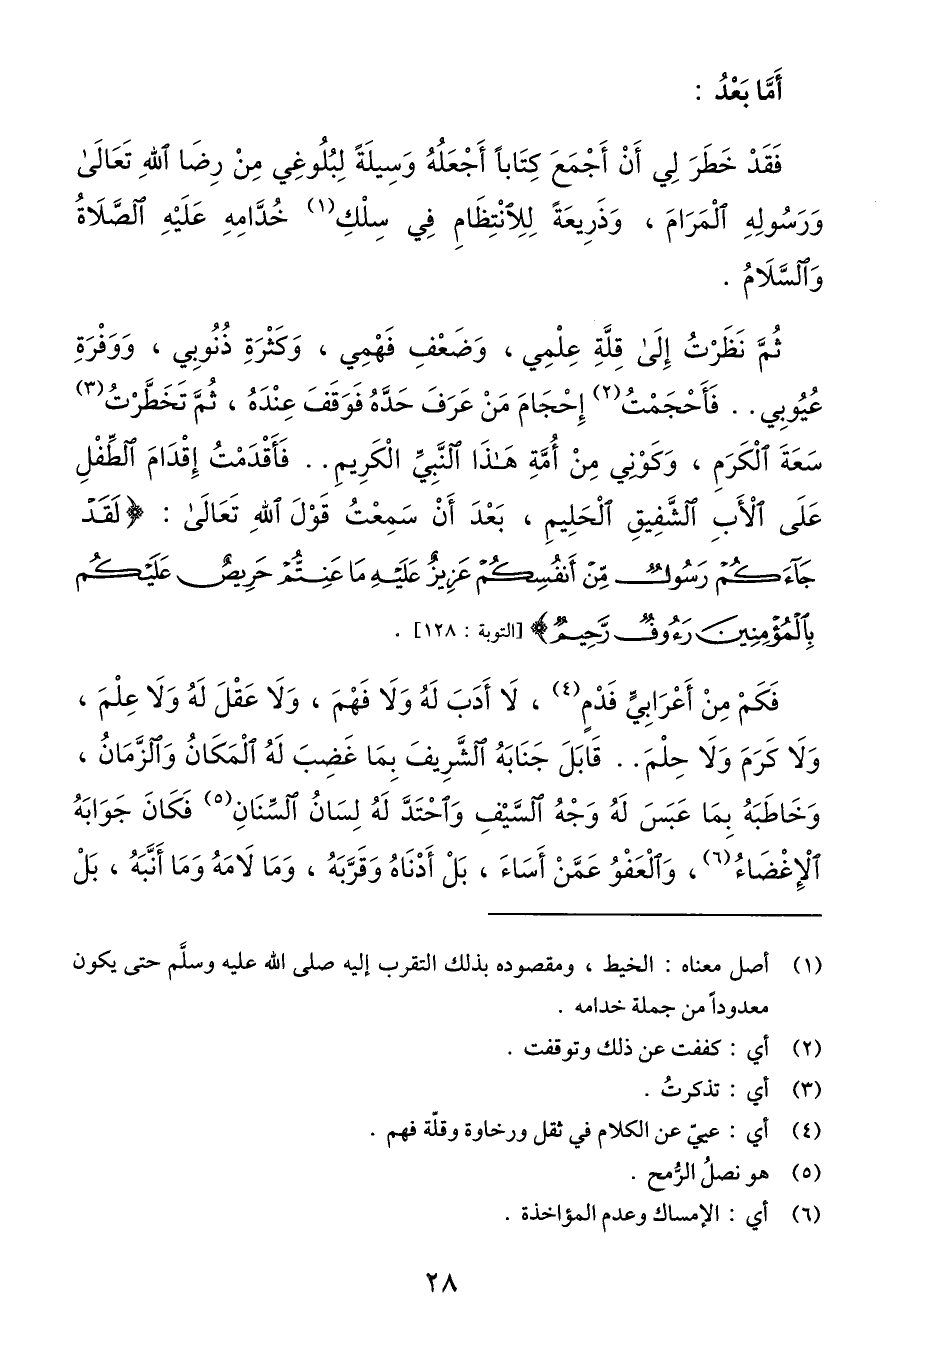 أَمَّا بَعْدُ :
فَقَدْ خَطَرَ لِي أَنْ أَجْمَعَ كِتَاباً أَجْعَلُهُ وَسِيلَةً لِبُلُوغِي مِنْ رِضَا ٱللهِ تَعَالَىٰ
وَرَسُولِهِ ٱلْمَرَامَ ، وَذَرِيعَةً لِلِٱنْتِظَامِ فِي سِلْكِ(١) خُدَّامِهِ عَلَيْهِ ٱلصَّلَاةُ
وَٱلسَّلَامُ .
ثُمَّ نَظَرْتُ إِلَىٰ قِلَّةِ عِلْمِي ، وَضَعْفِ فَهْمِي ، وَكَثْرَةِ ذُنُوبِي ، وَوَفْرَةِ
عُيُوبِي . . فَأَحْجَمْتُ(٢) إِحْجَامَ مَنْ عَرَفَ حَدَّهُ فَوَقَفَ عِنْدَهُ ، ثُمَّ تَخَطَّرْتُ(٣)
سَعَةَ ٱلْكَرَمِ ، وَكَوْنِي مِنْ أُمَّةِ هَـٰذَا ٱلنَّبِيِّ ٱلْكَرِيمِ . . فَأَقْدَمْتُ إِقْدَامَ ٱلطِّفْلِ
عَلَى ٱلْأَبِ ٱلشَّفِيقِ ٱلْحَلِيمِ ، بَعْدَ أَنْ سَمِعْتُ قَوْلَ ٱللهِ تَعَالَىٰ : ﴿ لَقَدْ
جَآءَكُمْ رَسُولٌ مِّنْ أَنفُسِكُمْ عَزِيزٌ عَلَيْهِ مَا عَنِتُّمْ حَرِيصٌ عَلَيْكُم
بِٱلْمُؤْمِنِينَ رَءُوفٌ رَّحِيمٌ ﴾ [التوبة : ١٢٨] .
فَكَمْ مِنْ أَعْرَابِيٍّ فَدْمٍ(٤) ، لَا أَدَبَ لَهُ وَلَا فَهْمَ ، وَلَا عَقْلَ لَهُ وَلَا عِلْمَ ،
وَلَا كَرَمَ وَلَا حِلْمَ . . قَابَلَ جَنَابَهُ ٱلشَّرِيفَ بِمَا غَضِبَ لَهُ ٱلْمَكَانُ وَٱلزَّمَانُ ،
وَخَاطَبَهُ بِمَا عَبَسَ لَهُ وَجْهُ ٱلسَّيْفِ وَٱحْتَدَّ لَهُ لِسَانُ ٱلسِّنَانِ(٥) فَكَانَ جَوَابَهُ
ٱلْإِغْضَاءُ(٦) ، وَٱلْعَفْوُ عَمَّنْ أَسَاءَ ، بَلْ أَدْنَاهُ وَقَرَّبَهُ ، وَمَا لَامَهُ وَمَا أَنَّبَهُ ، بَلْ
(١) أصل معناه : الخيط ، ومقصوده بذلك التقرب إليه صلى الله عليه وسلَّم حتى يكون
معدوداً من جملة خدامه .
(٢) أي : كففت عن ذلك وتوقفت .
(٣) أي : تذكرتُ .
(٤) أي : عييّ عن الكلام في ثقل ورخاوة وقلّة فهم .
(٥) هو نصلُ الرُّمح .
(٦) أي : الإمساك وعدم المؤاخذة .
٢٨